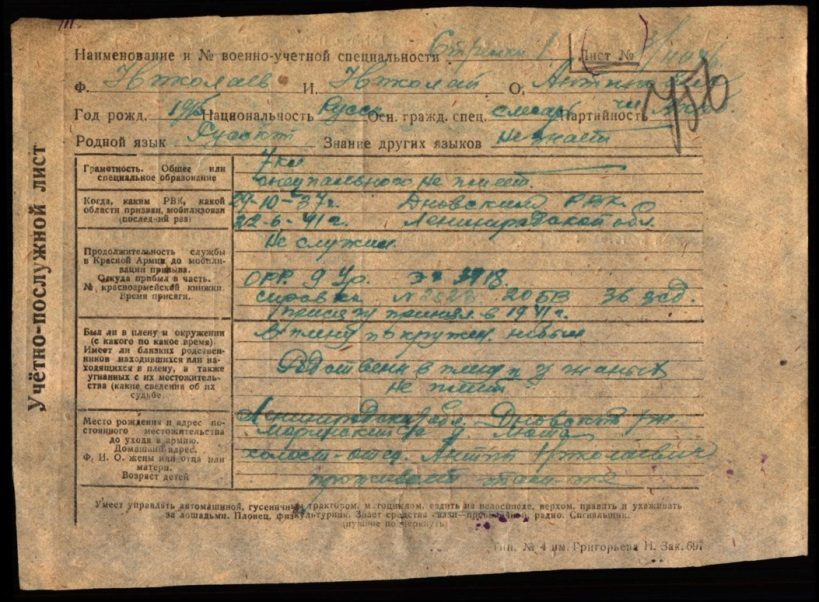 Наименование и № военно-учетной специальности Стрелки 1 Лист №
Ф. Николаев И. Николай О.
Год рожд. Национальность Русск Осн. гражд. спец. слесарь Партийность
756
Родной язык Русский Знание других языков Не знает
Учётно-послужной лист
Грамотность. Общее или
специальное образование
7 кл
не имеет.
Когда, каким РВК, какой
области призван, мобилизован
(последний раз)
29-10-37г. Дновским РВК.
22-6-41г. Ленинградской обл.
Продолжительность службы
в Красной Армии до мобили-
зации призыва.
Откуда прибыл в часть.
№ красноармейской книжки.
Время присяги.
Не служил.
ОРР. 9 Ур. 3918.
справка № 36 зсд.
присягу принял в 1941г.
Был ли в плену и окружении
(с какого по какое время)
Имеет ли близких родствен-
ников находившихся или на-
ходящихся в плену, а также
угнанных с их местожитель-
ства (какие сведения об их
судьбе
В плену и окружен. не был
Родственн в плену и
не имеет
Место рождения и адрес по-
стоянного местожительства
до ухода в армию.
Домашний адрес.
Ф. И. О. жены или отца или
матери.
Возраст детей
Ленинградская обл. Дновский
холост-отец. Антип Николаевич
проживает
Умеет управлять автомашиной, гусеничным трактором, мотоциклом, ездить на велосипеде, верхом, править и ухаживать
за лошадьми. Пловец, физкультурник. Знает средства связи—проводной, радио. Сигнальщик.
(нужное подчеркнуть)
Тип. № 4 им. Григорьева Н. Зак. 697